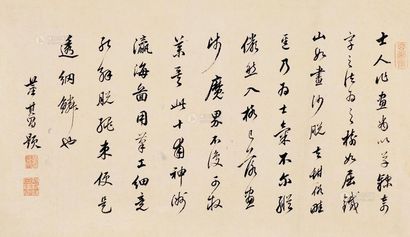 士人作畫當以草隸奇
字之法為之樹如屈鐵
山如畫沙脫去甜俗蹊
逕乃為士氣不爾縱
儼然入格已落畫
師魔界不復可救
藥矣此十
瀛海圖用筆工細竟
能解脫繩束便是
透網鱗也
董其昌題